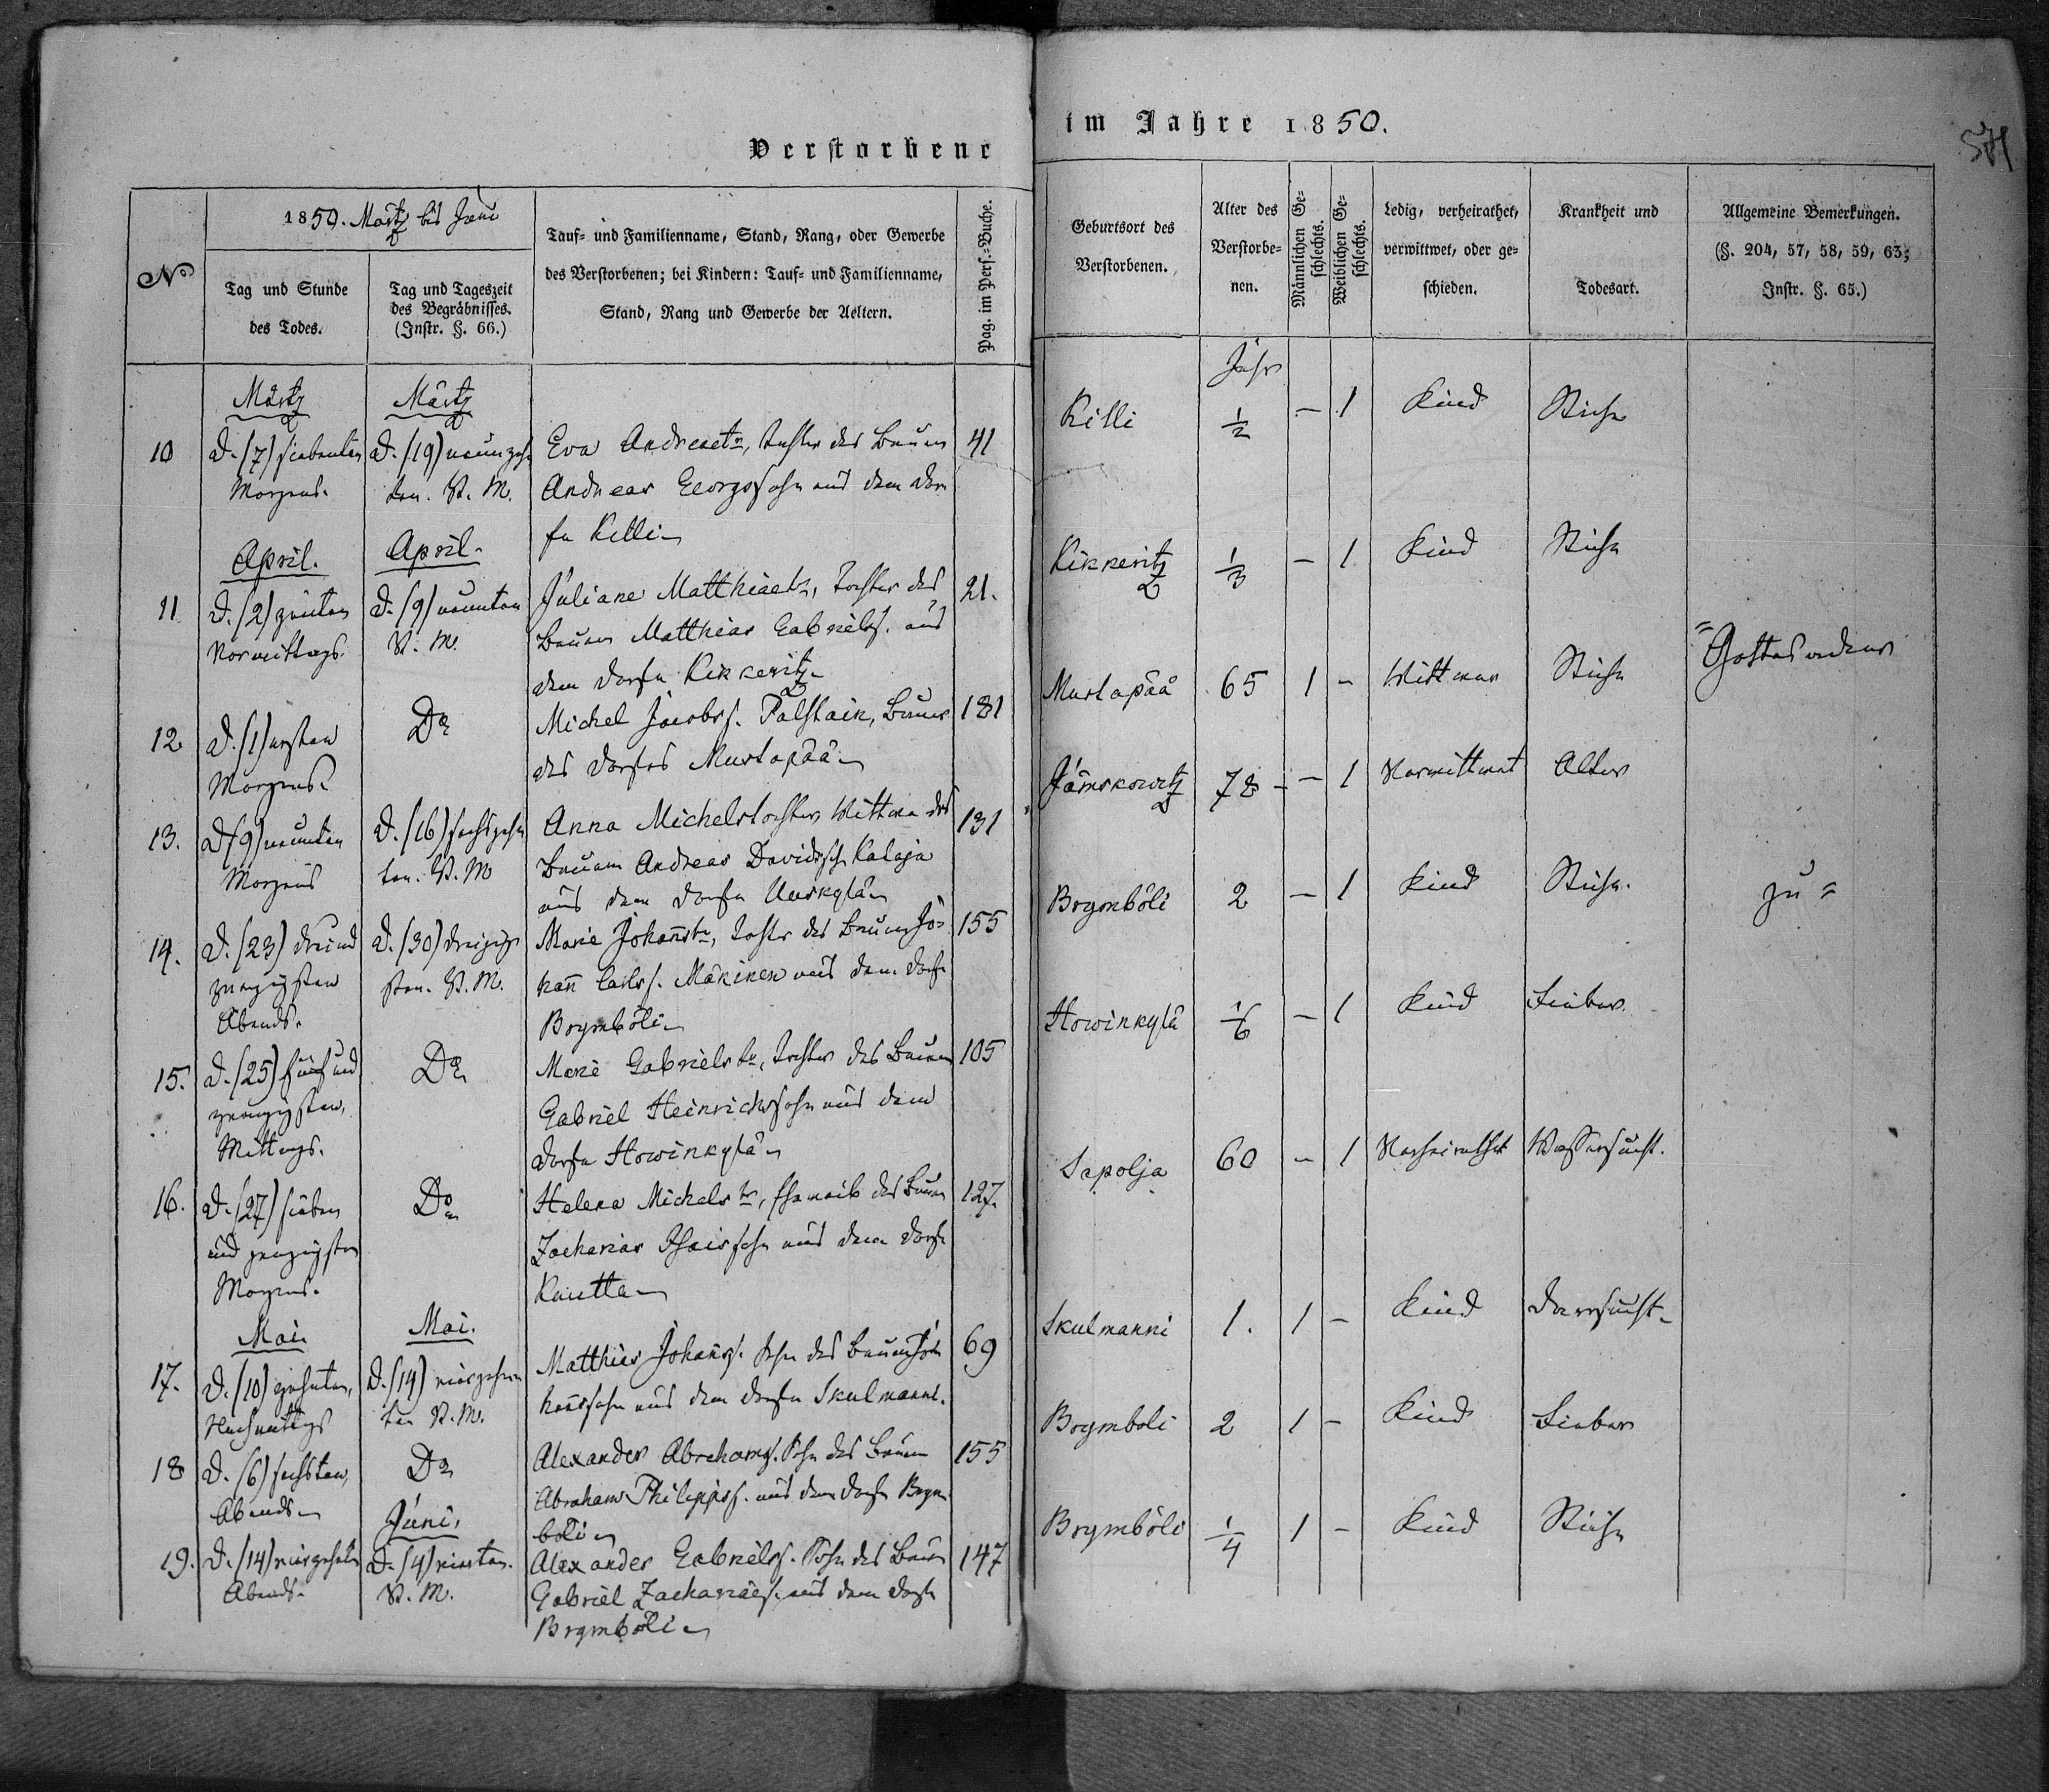 Verstorbene
im Jahre 1850.
№
1850. Märtz bis Juni
Tag und Stunde
des Todes.
Tag und Tageszeit
des Begräbnisses.
(Instr. §. 66.)
Tauf- und Familienname, Stand, Rang, oder Gewerbe
des Verstorbenen; bei Kindern: Tauf- und Familienname,
Stand, Rang und Gewerbe der Aeltern.
Pag. im Pers.-Buche.
Geburtsort des
Verstorbenen.
Alter des
Verstorbe-
nen.
Männlichen Ge-
schlechts.
Weiblichen Ge-
schlechts.
Ledig, verheirathet,
verwittwet, oder ge-
schieden.
Krankheit und
Todesart.
Allgemeine Bemerkungen.
(§. 204, 57, 58, 59, 63;
Instr. §. 65.)
Märtz
Märtz
Jahr
10 D. (7) siebenten D. (19) neunzehn Eva Andreastr, Tochter des Bauern 41 Killi 1/2 – 1 Kind
Morgens. ten. V. M. Andreas Georgssohn aus dem Dor
fe Killi
April.
April.
11 D. (2) zweiten D. (9) neunten Juliane Matthiaetr, Tochter des 21. Kikkeritz 1/3 – 1 Kind
Vormittags. V. M. Bauern Matthias Gabriels. aus
dem Dorfe Kikkeritz
12. D. (1) ersten Do Michel Jacobs. Bauer 181 Mustapää 65 1 – Wittwer = Gottesacker
Morgens. des Dorfes Mustapää
13. D. (9) neunten D. (16) sechszehn Anna Michelstochter Wittwe des 131 Jämskowitz 78 – 1 Verwittwet Alter
Morgens ten. V. M Bauern Andreas Davidssh Kalaja
aus dem Dorfe Uuskylä
14. D. (23) dreiund D. (30) dreizig Marie Johañstr, Tochter des Bauern Jo- 155 Brymböli 2 – 1 Kind zu =
zwanzigsten sten. V. M. hañ Mäkinen aus dem Dorfe
Abends. Brymböli
15. D. (25) fünfund Do Marie Gabrielstr, Tochter des Bauern 105 Howinkylä 1/6 – 1 Kind Fieber.
zwanzigsten, Gabriel Heinrichssohn aus dem
Mittags. Dorfe Howinkylä
16. D. (27) sieben Do Helena Michelstr, Eheweib des Bauern 127. Sapolja 60 – 1 Verheirathet Wassersucht.
und zwanzigsten Zacharias aus dem Dorfe
Morgens. Kautta
Mai.
Mai.
17. D. (10) zehnten, D. (14) vierzehn Matthias Johañs. Sohn des Bauern Jo 69 Skulmanni 1. 1 – Kind Darrsucht
Nachmittags ten V. M. hañssohn aus dem Dorfe Skulmanni.
18 D. (6) sechsten, Do Alexander Abrahams. Sohn des Bauern 155 Brymböli 2 1 – Kind Fieber
Abends Abraham Philipps. aus dem Dorfe Brym
böli
Juni.
19. D. (14) vierzehnten D. (4) vierten. Alexander Gabriels. Sohn des Bauern 147 Brymböli 1/4 1 – Kind
Abends. V. M. Gabriel Zacharias. aus dem Dorfe
Brymböli